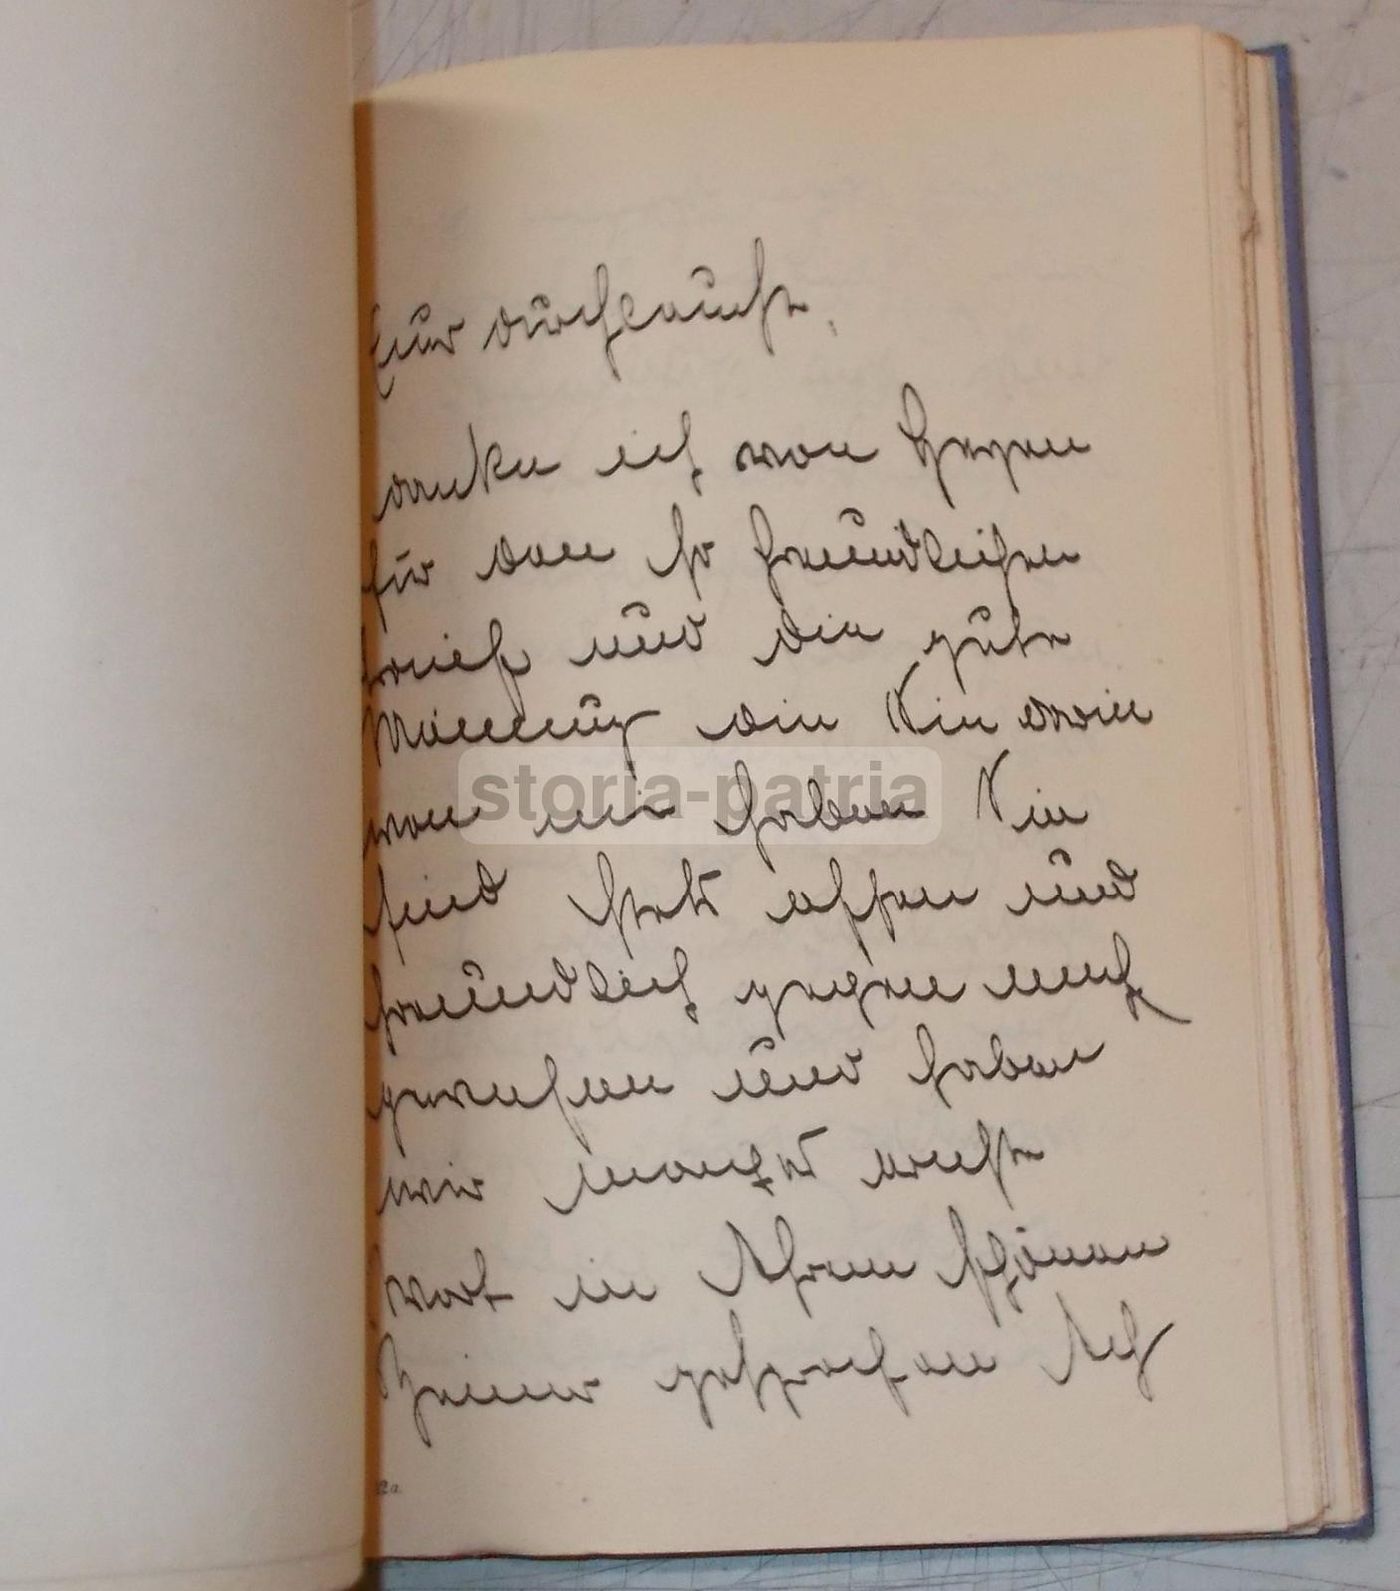 Eur Durchlaucht,
danke ich von Herzen
für den so freundlichen
Brief und die gute
Meinung die Sie darin
von mir haben Sie
sind stets offen und
freundlich gegen mich
gewesen und haben
mir manches ernste
Wort in Ihrem schönen
Heime gesprochen Ich
2a
storia-patria